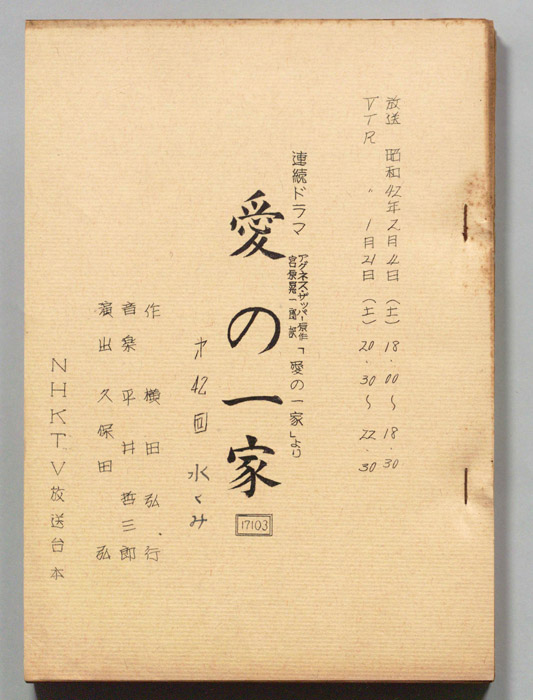 放送 昭和42年2月4日(土)18.00〜18.30
VTR 〃 1月21日(土)20.30〜22.30
連続ドラマ
アグネス・ザッパー原作
宮原晃一郎訳「愛の一家」より
愛の一家
17103
才42回 水くみ
作 横田弘行
音楽 平井哲三郎
演出 久保田 弘
NHKTV放送台本